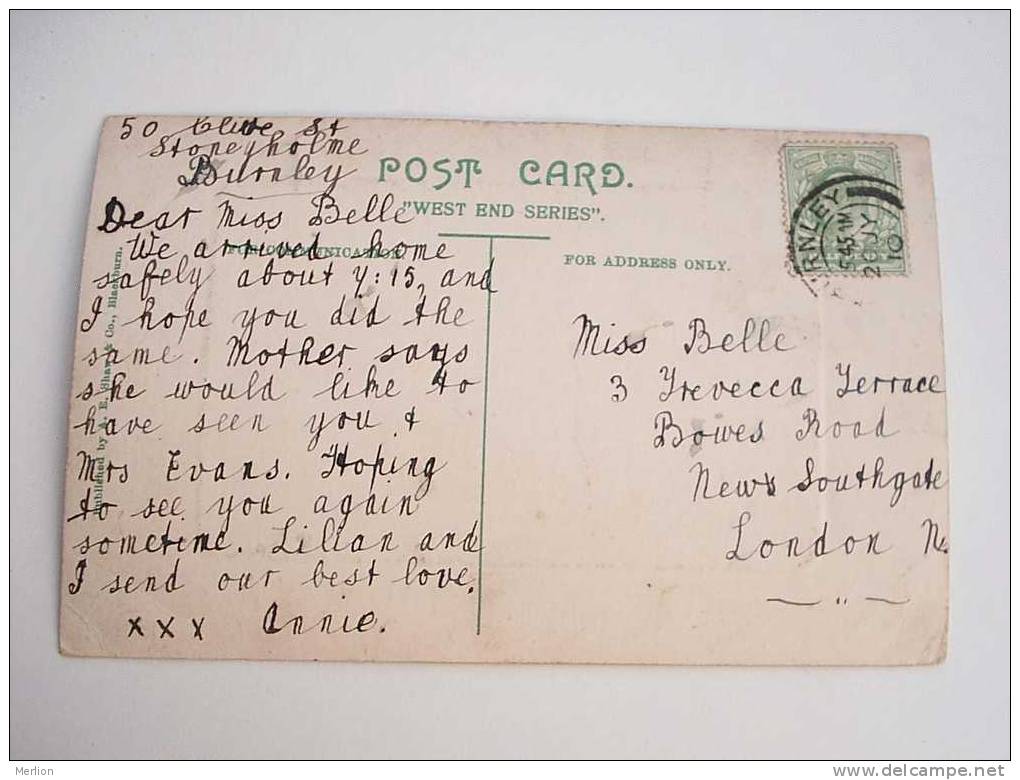 50 Clive St
Stoneyholme
Burnley
POST CARD.
"WEST END SERIES".
Dear Miss Belle
We arrived home
safely about 7:15, and
I hope you did the
same. Mother says
she would like to
have seen you &
Mrs Evans. Hoping
to see you again
sometime. Lilian and
I send our best love.
x x x Annie.
FOR COMMUNICATION
Published by A. E. Shaw & Co., Blackburn.
FOR ADDRESS ONLY.
BURNLEY
5.45
JY
10
Miss Belle
3 Trevecca Terrace
Bowes Road
New Southgate
London N.
Merlion
www.delcampe.net